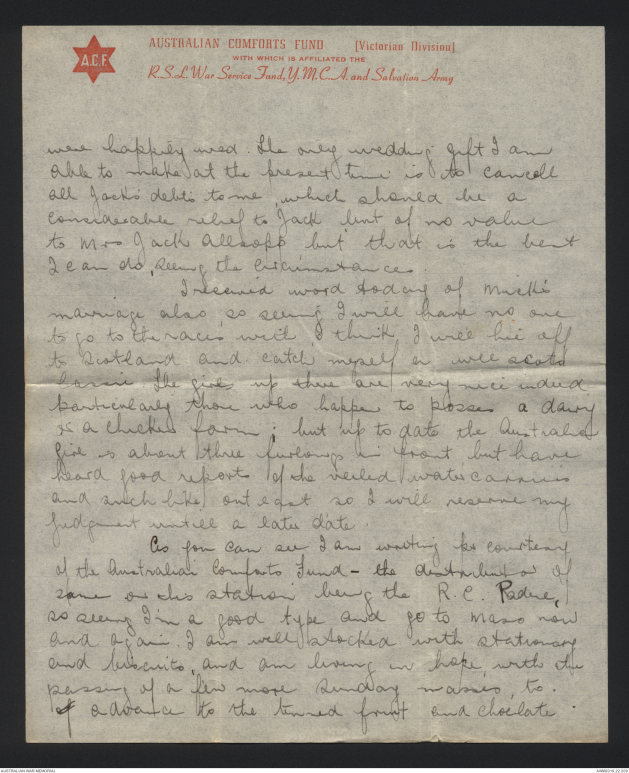 A.C.F.
AUSTRALIAN COMFORTS FUND [Victorian Division]
WITH WHICH IS AFFILIATED THE
R.S.L. War Service Fund, Y.M.C.A. and Salvation Army
were happily wed. The only wedding gift I am
able to make at the present time is to cancell
all Jack's debts to me, which should be a
considerable relief to Jack but of no value
to Mrs Jack Allsopp but that is the best
I can do, seeing the circumstances
I received word today of Muck's
marriage also, so seeing I will have no one
to go to the races with, I think I will hie off
to Scotland and catch myself a wee scots
lassie. The girls up there are very nice indeed
particularly those who happen to posses a dairy
or a chicken farm; but up to date the Australian
girl is about three furlongs in front but have
heard good reports of the veiled water carriers
and such like out east so I will reserve my
judgment untill a later date.
As you can see I am writing by courtesy
of the Australian Comforts Fund - the distributor of
same on this station being the R.C. Padre,
so seeing I'm a good type and go to Mass now
and again I am well stocked with stationary
and biscuits, and am living in hope, with the
passing of a few more Sunday masses, to
advance to the tinned fruit and choclate.
AUSTRALIAN WAR MEMORIAL